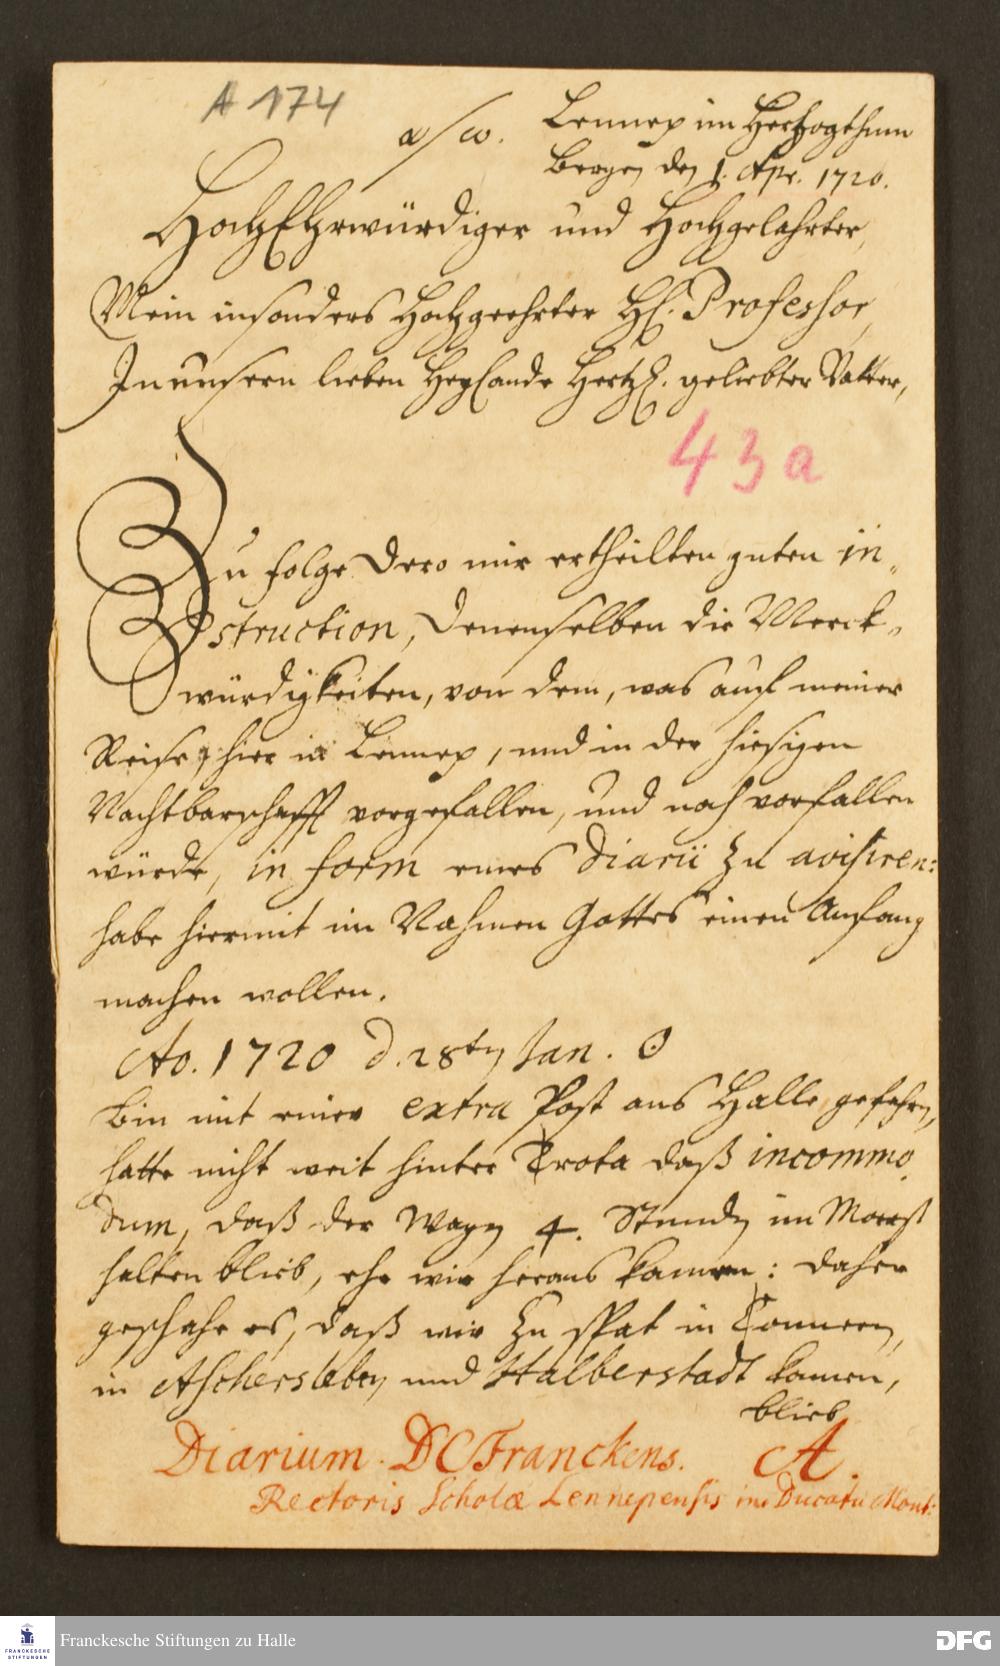 A 174
Lennep im Hertzogthum
a/w.
Bergen den 1. Apr. 1720.
HochEhrwürdiger und Hochgelahrter,
Mein insonders Hochgeehrter H. Professor,
In unserm lieben Heylande Hertzl. geliebter Vatter,
43a
Zu folge Dero mir ertheilten guten in-
struction, Denenselben die Merck-
würdigkeiten, von dem, was auf meiner
Reise, hier in Lennep, und in der hiesigen
Nachtbarschafft vorgefallen, und noch vorfallen
würde, in form eines Diarii zu avisiren:
habe hiermit im Nahmen Gottes einen Anfang
machen wollen.
Ao. 1720 d. 28ten Jan. ☉
Bin mit einer extra Post aus Halle gefahren,
hatte nicht weit hinter Trota daß incommo
dum, daß der Wagen 4. Stunden im Morast
halten blieb, ehe wir heraus kamen: daher
geschahe es, daß wir zu spat in Connern,
in Aschersleben und Halberstadt kamen,
blieb
Diarium. DC Franckens. A.
Rectoris Scholæ Lennepensis im Ducatu Mont:
Franckesche Stiftungen zu Halle
FRANCKESCHE
STIFTUNGEN
DFG